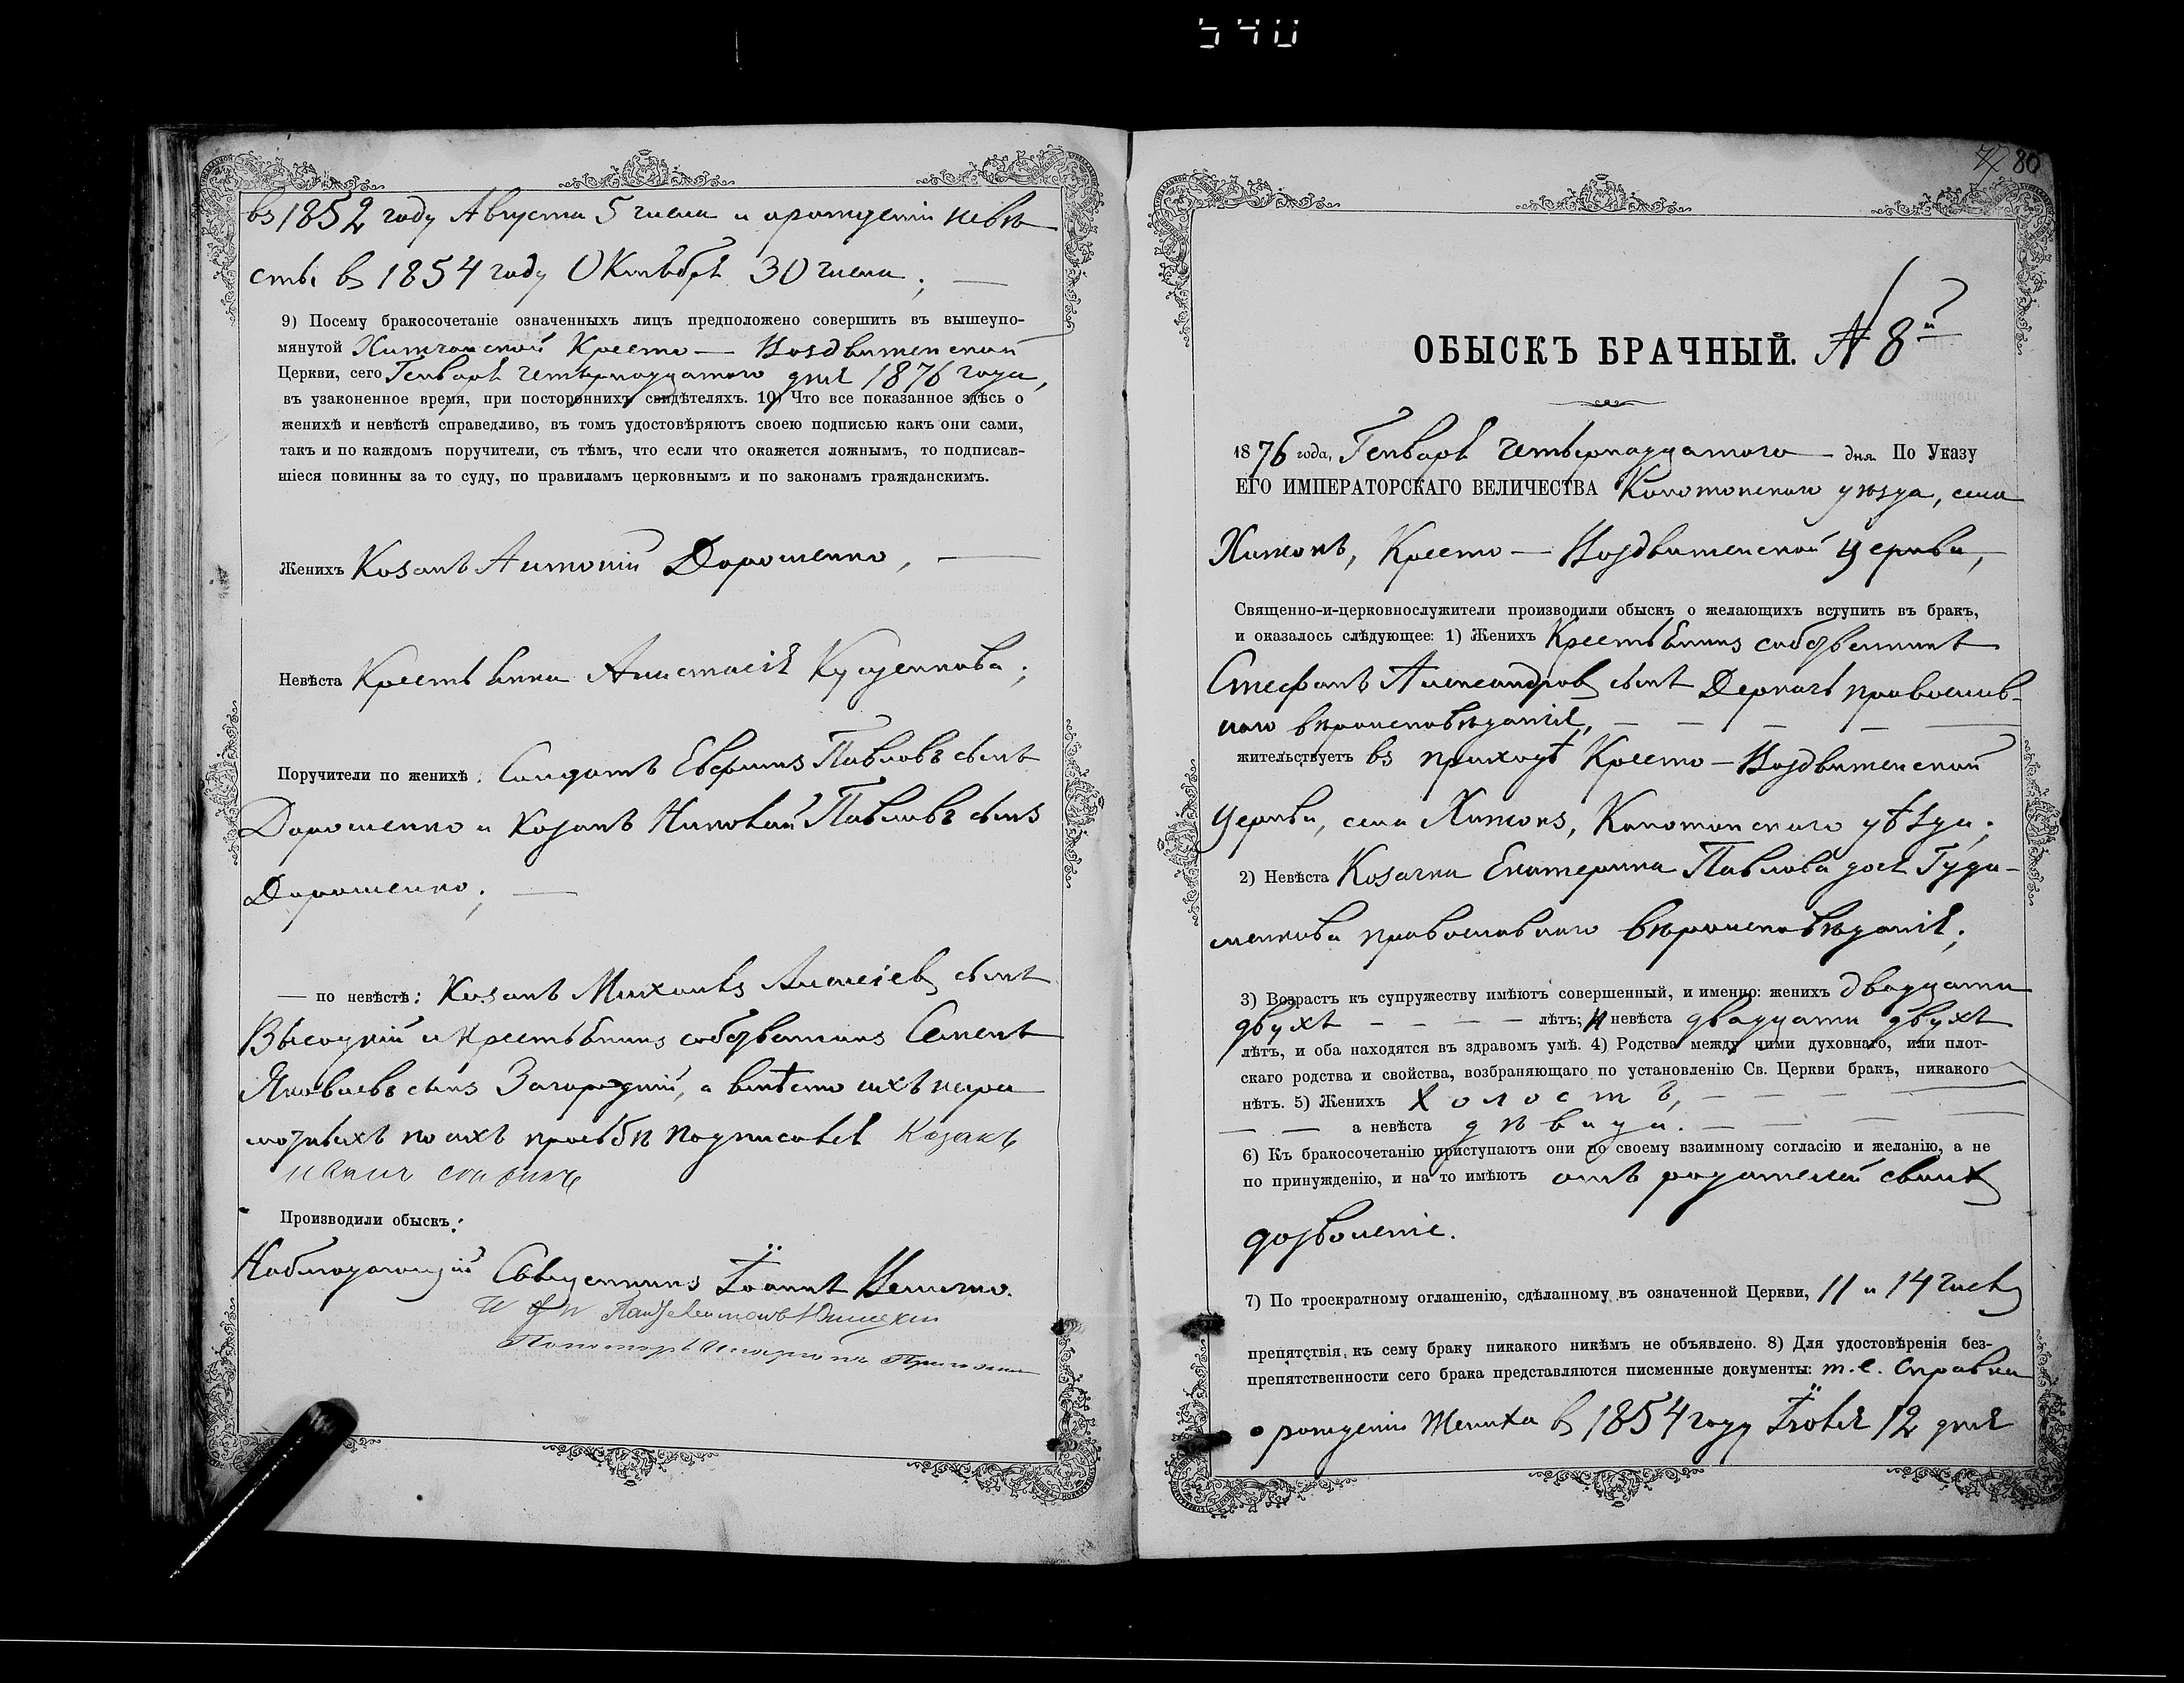 540
въ 1852 году Августа 5 числа и о рождении невѣ-
сты въ 1854 году Октября 30 числа;
9) Посему бракосочетаніе означенныхъ лицъ предположено совершить въ вышеупо-
мянутой Хижчанской Кресто-Воздвиженской
Церкви, сего Генваря четырнадцатого дня 1876 года,
въ узаконенное время, при постороннихъ свидѣтеляхъ. 10) Что все показанное здѣсь о
женихѣ и невѣстѣ справедливо, въ томъ удостовѣряютъ своею подписью какъ они сами,
такъ и по каждомъ поручители, съ тѣмъ, что если что окажется ложнымъ, то подписав-
шіеся повинны за то суду, по правиламъ церковнымъ и по законамъ гражданскимъ.
Женихъ Козакъ Антоній Дорошенко,
Невѣста Крестьянка Анастасія Куценкова;
Поручители по женихѣ: Солдатъ Евфимъ Павловъ сынъ
Дорошенко и Козакъ Николай Павловъ сынъ
Дорошенко;
— по невѣстѣ: Козакъ Михаилъ Алексіевъ сынъ
Высоцкій и крестьянинъ собственникъ Семенъ
Яковлевъ сынъ Загородній, а вмѣсто ихъ негра-
мотныхъ по ихъ просьбѣ подписался Козакъ
Производили обыскъ:
Наблюдающій Священникъ Іоаннъ
И д п
Пономарь
80
ОБЫСКЪ БРАЧНЫЙ. N 8й
1876 года, Генваря четырнадцатого дня. По Указу
ЕГО ИМПЕРАТОРСКАГО ВЕЛИЧЕСТВА Конотопского уѣзда, села
Хижокъ, Кресто-Воздвиженской Церкви,
Священно-и-церковнослужители производили обыскъ о желающихъ вступить въ бракъ,
и оказалось слѣдующее: 1) Женихъ Крестьянинъ собственникъ
Стефанъ Александровъ сынъ Деркачъ православ-
ного вѣроисповѣданія,
жительствуетъ въ приходѣ Кресто-Воздвиженской
Церкви, села Хижокъ, Конотопского уѣзда;
2) Невѣста Козачка Екатерина Павлова дочь Гуди-
менкова православного вѣроисповѣданія;
3) Возрастъ къ супружеству имѣютъ совершенный, и именно: женихъ двадцати
двухъ лѣтъ; и невѣста двадцати двухъ
лѣтъ, и оба находятся въ здравомъ умѣ. 4) Родства между ними духовнаго, или плот-
скаго родства и свойства, возбраняющаго по установленію Св. Церкви бракъ, никакого
нѣтъ. 5) Женихъ холостъ,
а невѣста дѣвица.
6) Къ бракосочетанію приступаютъ они по своему взаимному согласію и желанію, а не
по принужденію, и на то имѣютъ отъ родителей своихъ
дозволеніе.
7) По троекратному оглашенію, сдѣланному въ означенной Церкви, 11 и 14 числъ
препятствія къ сему браку никакого никѣмъ не объявлено. 8) Для удостовѣренія без-
препятственности сего брака представляются писменные документы: т.е. справка
о рожденіи жениха въ 1854 году Іюля 12 дня